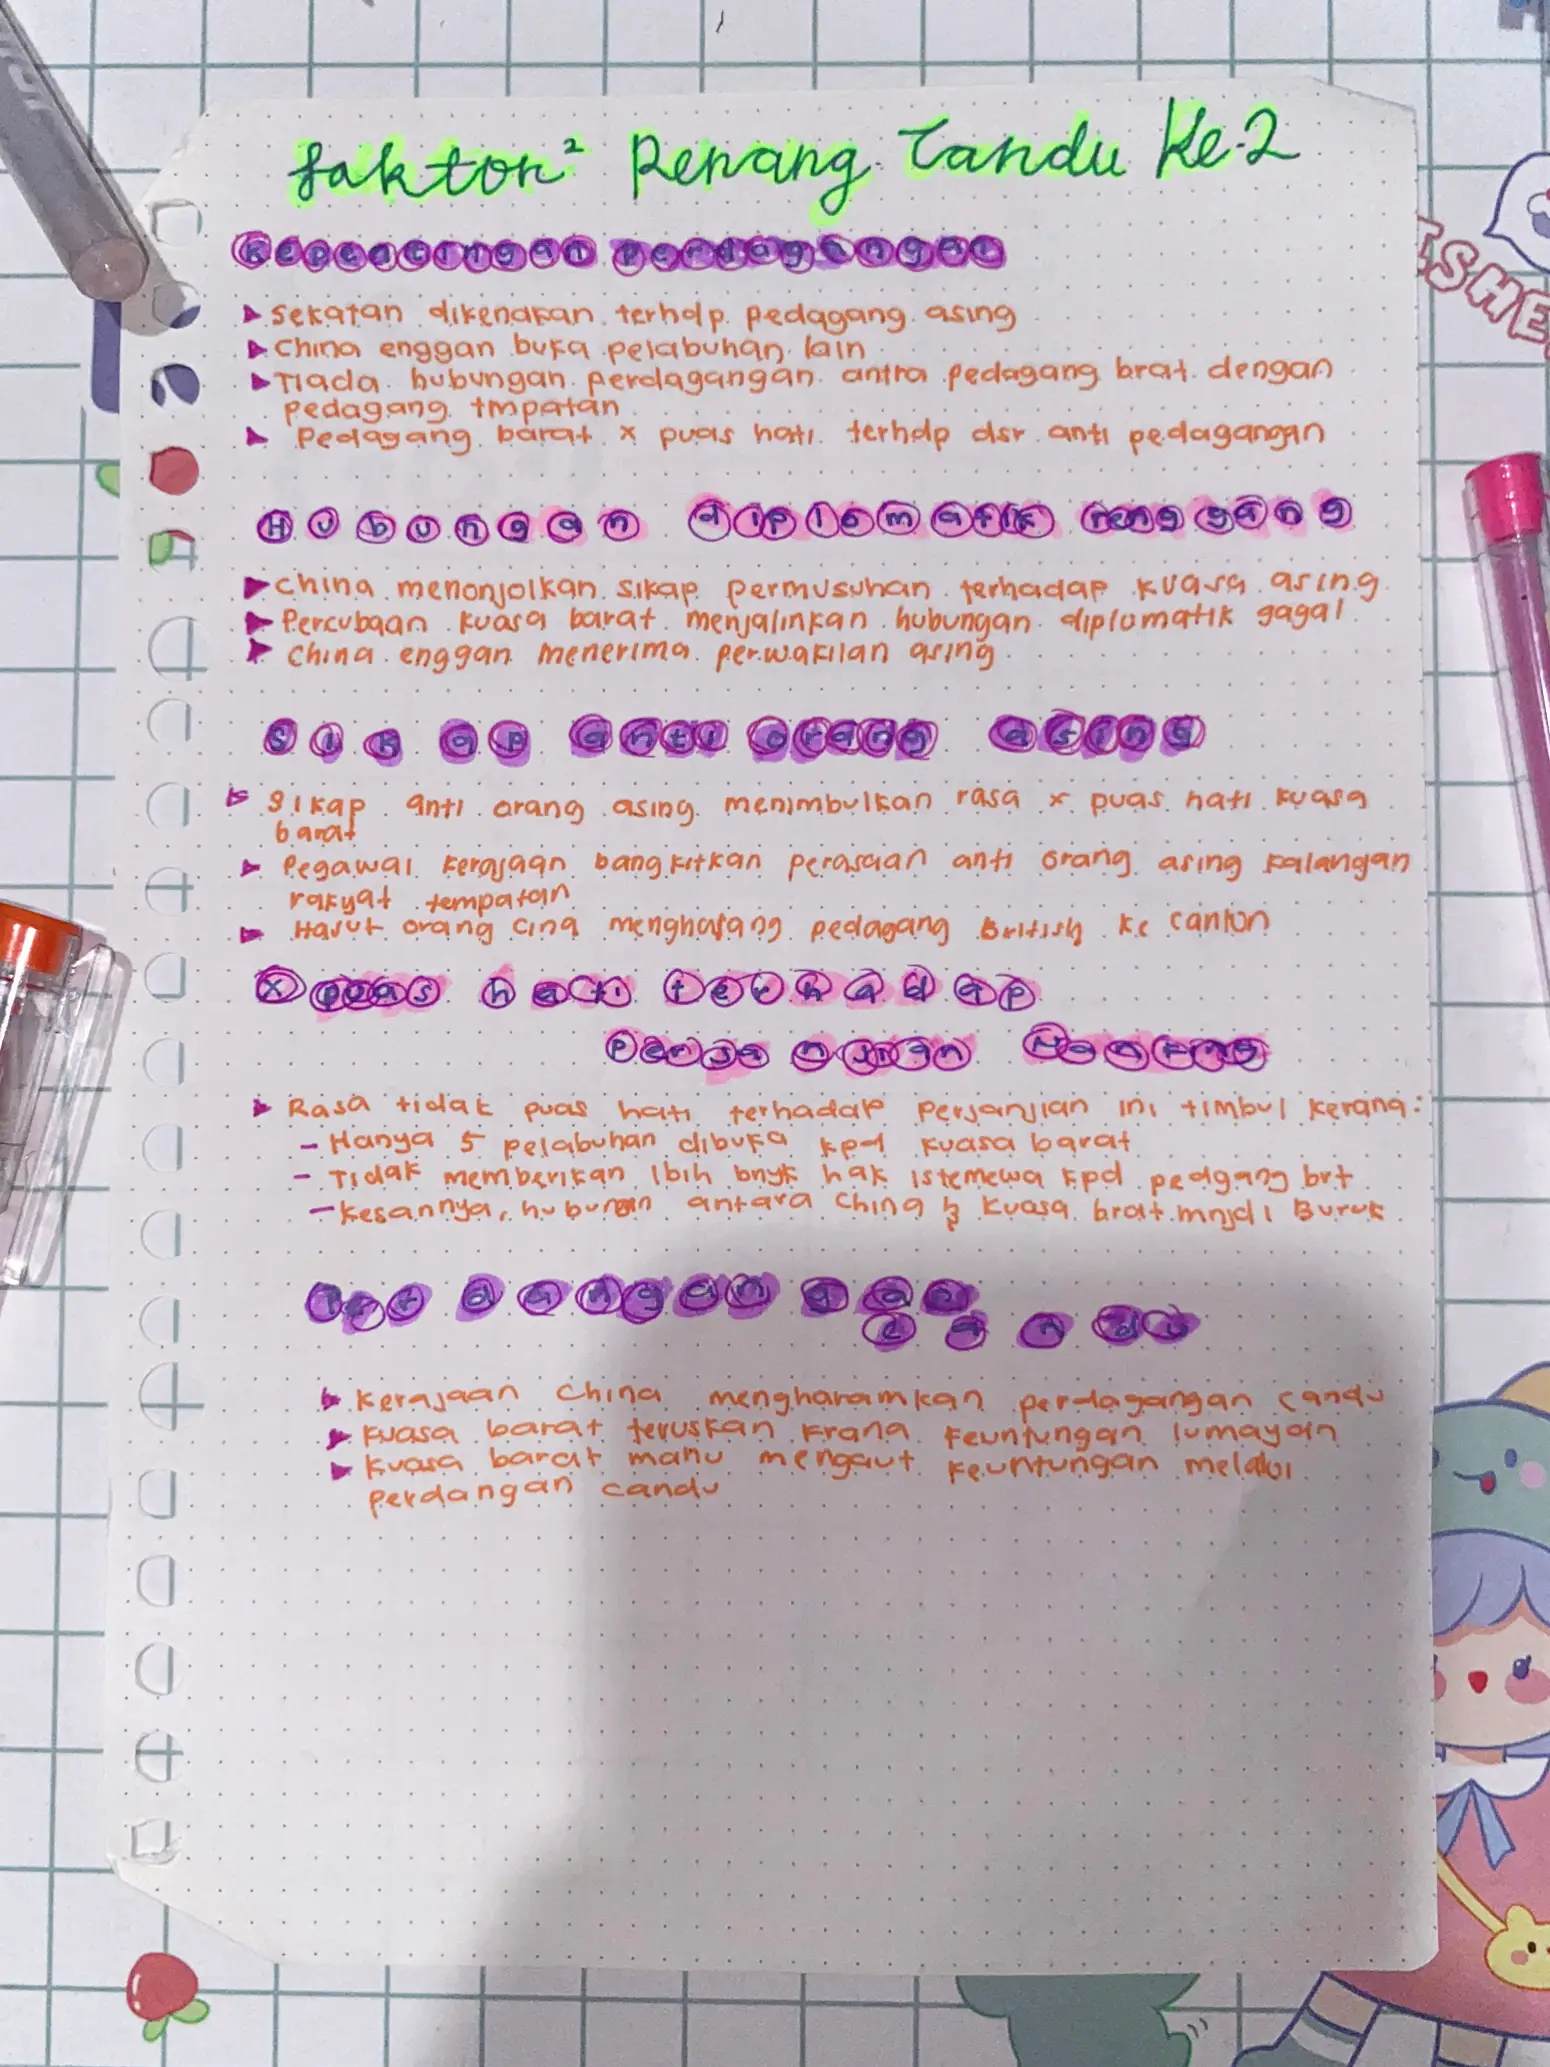 faktor² Perang Candu Ke-2
Kepentingan perdagangan
sekatan dikenakan terhdp pedagang asing
China enggan buka pelabuhan lain
Tiada hubungan perdagangan antra pedagang brat dengan
pedagang tmpatan
Pedagang barat x puas hati terhdp dsr anti pedagangan
Hubungan diplomatik renggang
China menonjolkan sikap permusuhan terhadap kuasa asing
Percubaan kuasa barat menjalinkan hubungan diplomatik gagal
China enggan menerima perwakilan asing
Sikap anti orang asing
Sikap anti orang asing menimbulkan rasa x puas hati kuasa
barat
Pegawai kerajaan bangkitkan perasaan anti orang asing kalangan
rakyat tempatan
Hasut orang cina menghalang pedagang British ke canton
X puas hati terhadap
Perjanjian Nanking
Rasa tidak puas hati terhadap Perjanjian ini timbul kerana:
- Hanya 5 pelabuhan dibuka kpd kuasa barat
- Tidak memberikan lbih bnyk hak istemewa kpd pedgang brt
- Kesannya, hubungan antara China & Kuasa brat mnjdi Buruk
candu
Kerajaan China mengharamkan perdagangan candu
Kuasa barat teruskan krana keuntungan lumayan
Kuasa barat mahu mengaut keuntungan melalui
perdangan candu
ISHE